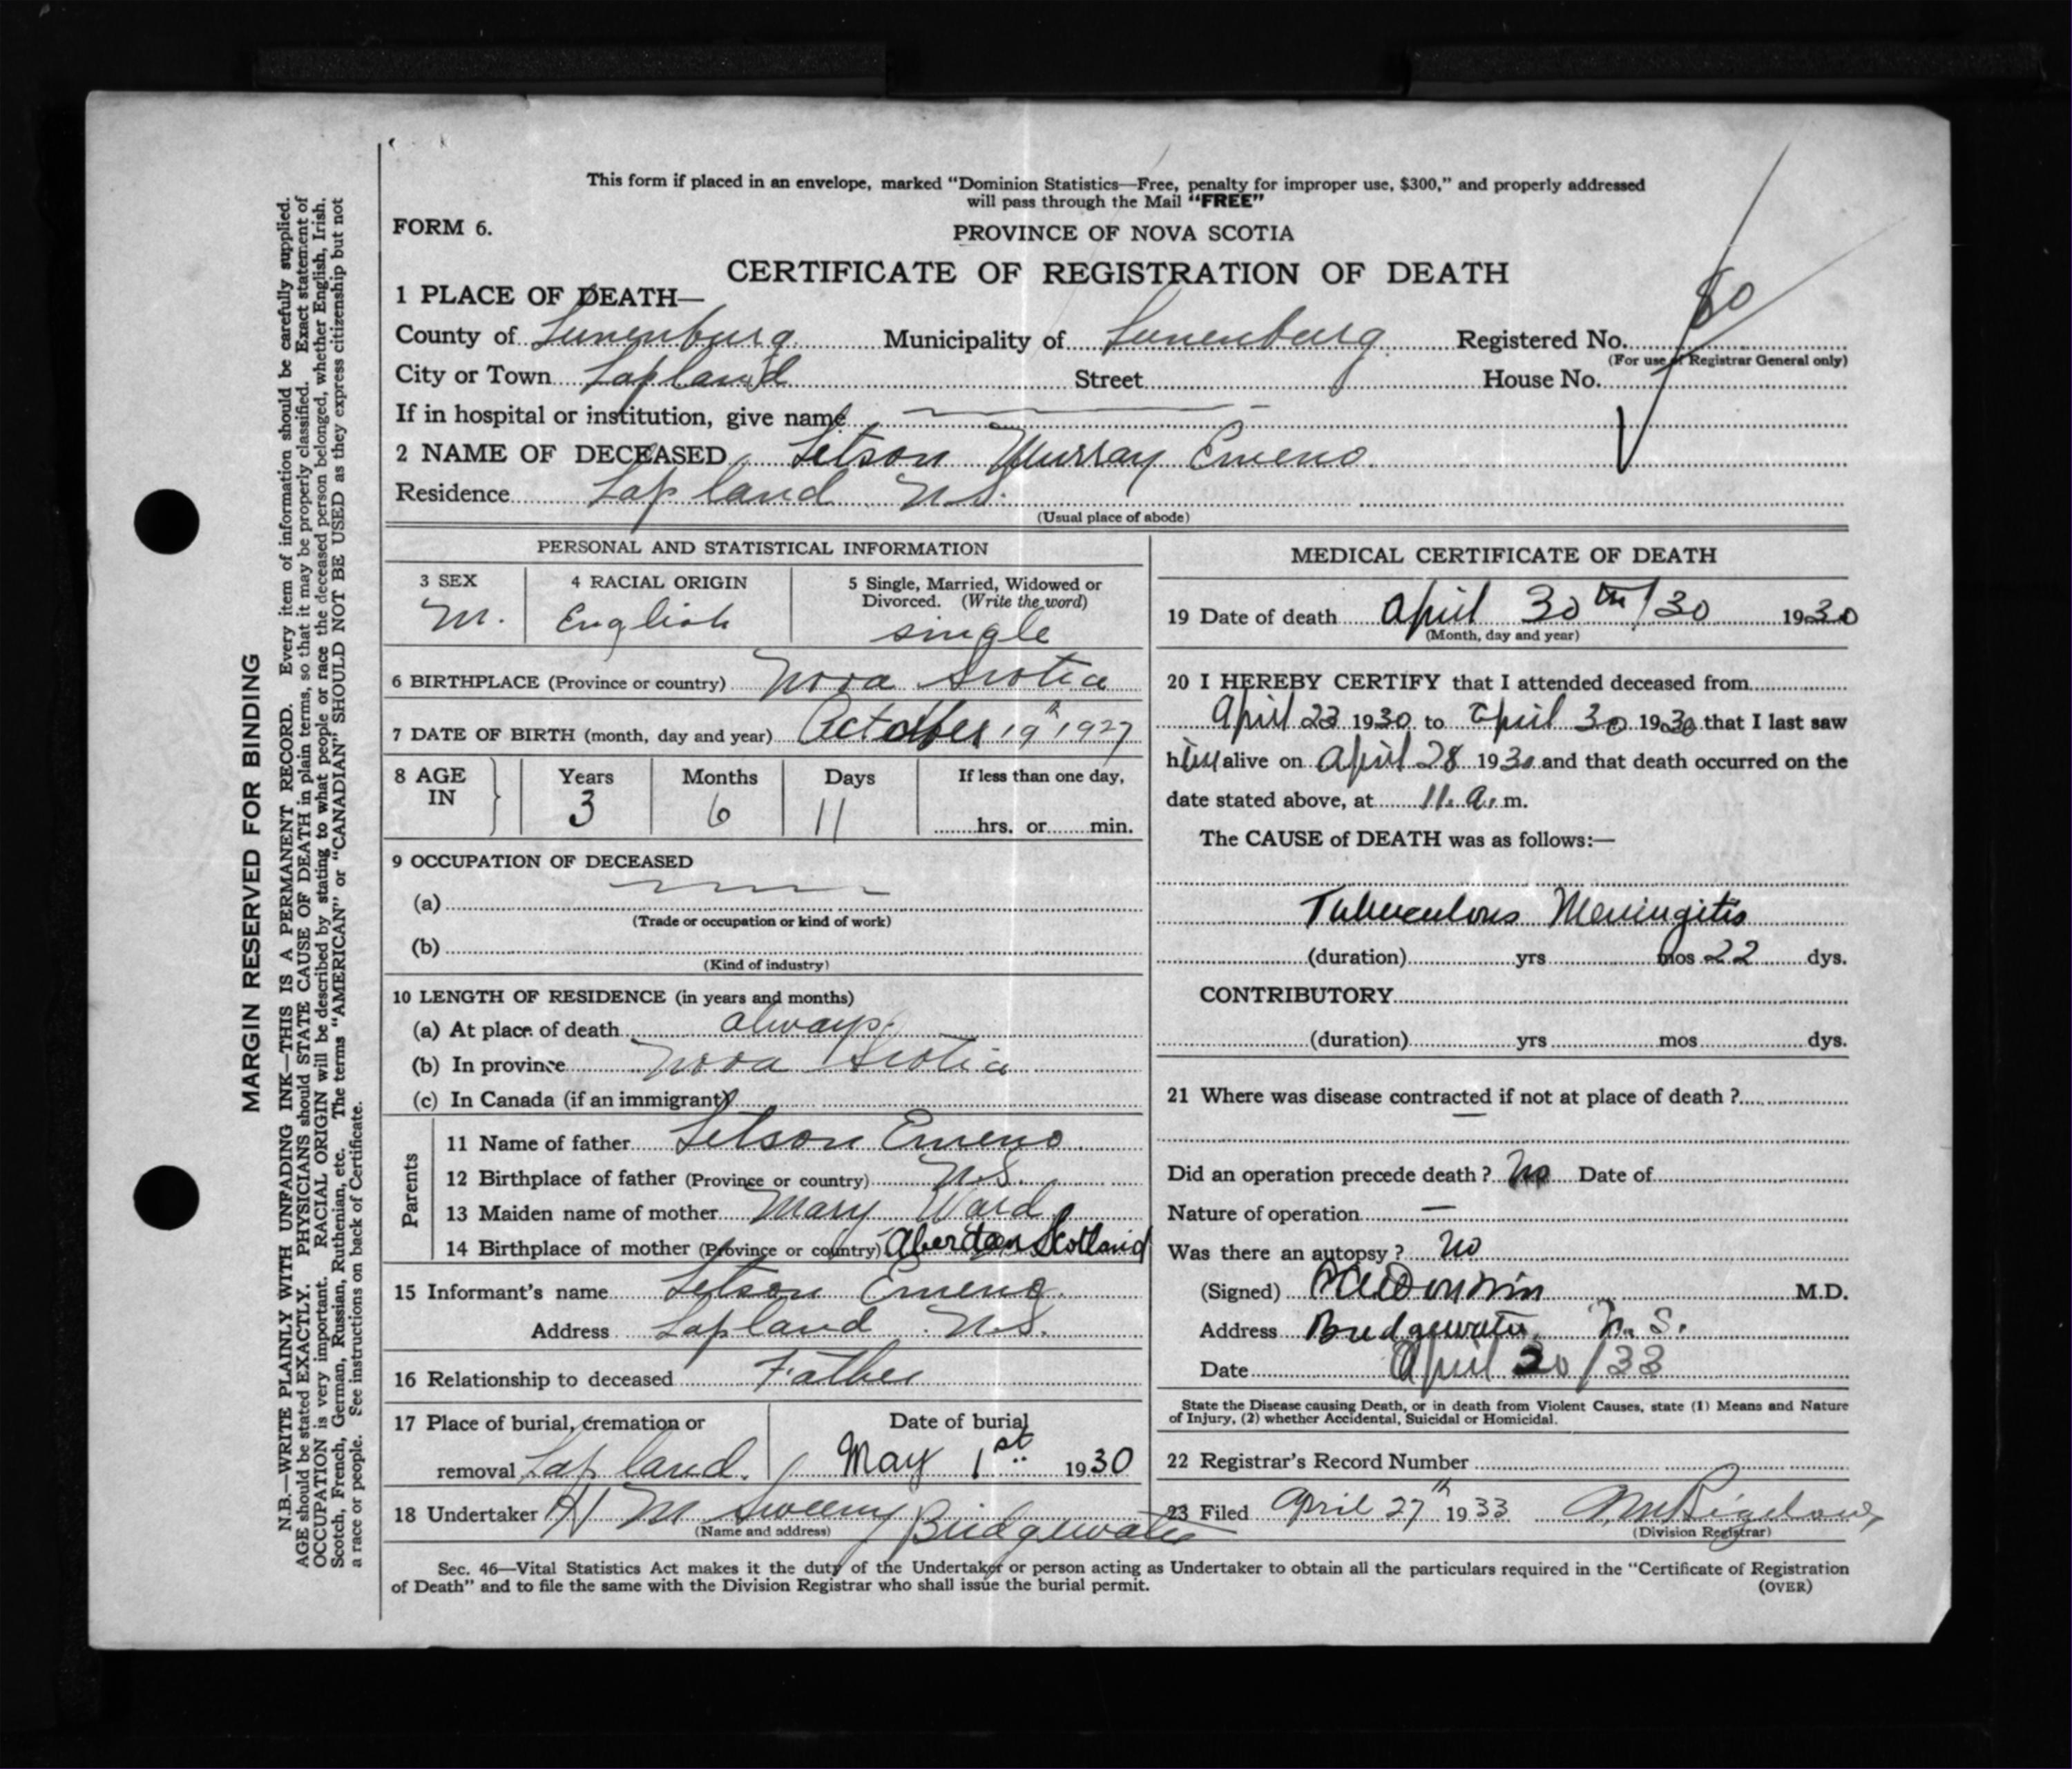 This form if placed in an envelope, marked "Dominion Statistics—Free, penalty for improper use, $300," and properly addressed
will pass through the Mail "FREE"
FORM 6.
PROVINCE OF NOVA SCOTIA
CERTIFICATE OF REGISTRATION OF DEATH
80
1 PLACE OF DEATH—
County of Lunenburg Municipality of Lunenburg Registered No.
(For use of Registrar General only)
City or Town Lapland Street House No.
If in hospital or institution, give name
2 NAME OF DECEASED Letson Murray Emeno
Residence Lapland N.S.
(Usual place of abode)
PERSONAL AND STATISTICAL INFORMATION
3 SEX 4 RACIAL ORIGIN 5 Single, Married, Widowed or
Divorced. (Write the word)
M. English single
6 BIRTHPLACE (Province or country) Nova Scotia
7 DATE OF BIRTH (month, day and year) October 19th 1927
8 AGE IN Years Months Days If less than one day,
3 6 11 hrs. or min.
9 OCCUPATION OF DECEASED
(a)
(Trade or occupation or kind of work)
(b)
(Kind of industry)
10 LENGTH OF RESIDENCE (in years and months)
(a) At place of death always
(b) In province Nova Scotia
(c) In Canada (if an immigrant)
Parents
11 Name of father Letson Emeno
12 Birthplace of father (Province or country) N.S.
13 Maiden name of mother Mary Ward
14 Birthplace of mother (Province or country) Aberdeen Scotland
15 Informant's name Letson Emeno
Address Lapland N.S.
16 Relationship to deceased Father
17 Place of burial, cremation or Date of burial
removal Lapland. May 1st 1930
18 Undertaker H M Sweeny Bridgewater
(Name and address)
MEDICAL CERTIFICATE OF DEATH
19 Date of death April 30th/30 1930
(Month, day and year)
20 I HEREBY CERTIFY that I attended deceased from
April 23 1930 to April 30 1930 that I last saw
him alive on April 28 1930 and that death occurred on the
date stated above, at 11. a. m.
The CAUSE of DEATH was as follows:—
Tuberculous Meningitis
(duration) yrs mos 22 dys.
CONTRIBUTORY
(duration) yrs mos dys.
21 Where was disease contracted if not at place of death ?
—
Did an operation precede death ? No Date of
Nature of operation —
Was there an autopsy ? no
(Signed) M.D.
Address Bridgewater, N. S.
Date April 20/33
State the Disease causing Death, or in death from Violent Causes, state (1) Means and Nature
of Injury, (2) whether Accidental, Suicidal or Homicidal.
22 Registrar's Record Number
23 Filed April 27th 1933 Bigelow
(Division Registrar)
Sec. 46—Vital Statistics Act makes it the duty of the Undertaker or person acting as Undertaker to obtain all the particulars required in the "Certificate of Registration
of Death" and to file the same with the Division Registrar who shall issue the burial permit.
(OVER)
MARGIN RESERVED FOR BINDING
N.B.—WRITE PLAINLY WITH UNFADING INK—THIS IS A PERMANENT RECORD. Every item of information should be carefully supplied.
AGE should be stated EXACTLY. PHYSICIANS should STATE CAUSE OF DEATH in plain terms, so that it may be properly classified. Exact statement of
OCCUPATION is very important. RACIAL ORIGIN will be described by stating to what people or race the deceased person belonged, whether English, Irish,
Scotch, French, German, Russian, Ruthenian, etc. The terms "AMERICAN" or "CANADIAN" SHOULD NOT BE USED as they express citizenship but not
a race or people. See instructions on back of Certificate.